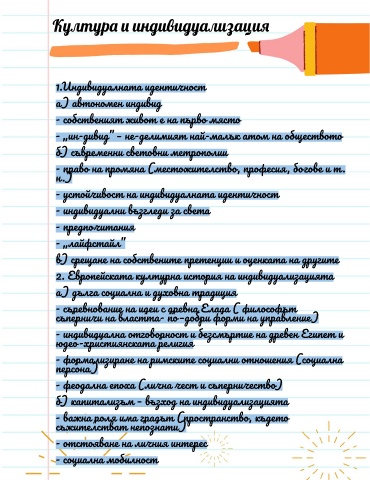 Култура и индивидуализация
1.Индивидуалната идентичност
а) автономен индивид
- собственият живот е на първо място
- „ин-дивид" – не-делимият най-малък атом на обществото
б) съвременни световни метрополии
- право на промяна (местожителство, професия, богове и т.
н.)
- устойчивост на индивидуалната идентичност
- индивидуални възгледи за света
- предпочитания
- „лайфстайл"
в) срещане на собствените претенции и оценката на другите
2. Европейската културна история на индивидуализацията
а) дълга социална и духовна традиция
- съревнование на идеи с древна Елада ( философът
съперничи на властта- по-добри форми на управление)
- индивидуална отговорност и безсмъртие на древен Египет и
юдео-християнската религия
- формализиране на римските социални отношения (социална
персона)
- феодална епоха (лична чест и съперничество)
б) капитализъм - възход на индивидуализацията
- важна роля има градът (пространство, където
съжителстват непознати)
- отстояване на личния интерес
- социална мобилност